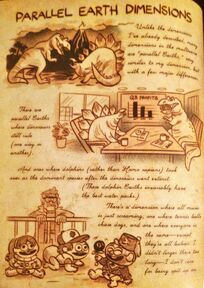 PARALLEL EARTH DIMENSIONS
Unlike the dimensions
I've already described, many
dimensions in the multiverse
are "parallel Earths," very
similar to my dimension but
with a few major differences.
OUR PROFITS
There are
parallel Earths
where dinosaurs
still rule
(one way or
another).
And ones where dolphins (rather than Homo sapiens) took
over as the dominant species after the dinosaurs went extinct.
(These dolphin Earths invariably have
the best water parks.)
There's a dimension where all music
is just screaming, one where tennis balls
chase dogs, and one where everyone is
the same—except
they're all babies. I
didn't linger there too
long I don't care
for being spit up on.